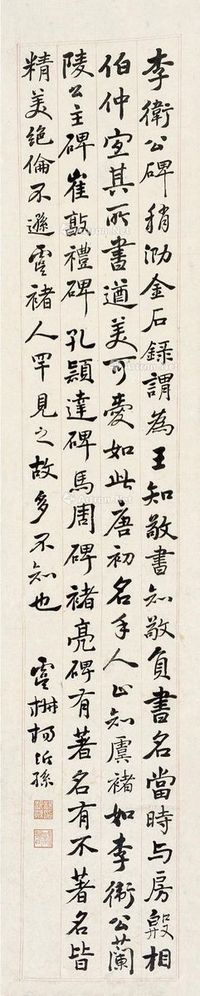 李衛公碑稍泐金石録謂為王知敬書知敬負書名當時与房殷相
伯仲宜其所書遒美可愛如此唐初名手人止知虞褚如李衛公蘭
陵公主碑崔敦禮碑孔穎達碑馬周碑褚亮碑有著名有不著名皆
精美絶倫不遜虞褚人罕見之故多不知也
虛楊沂孫